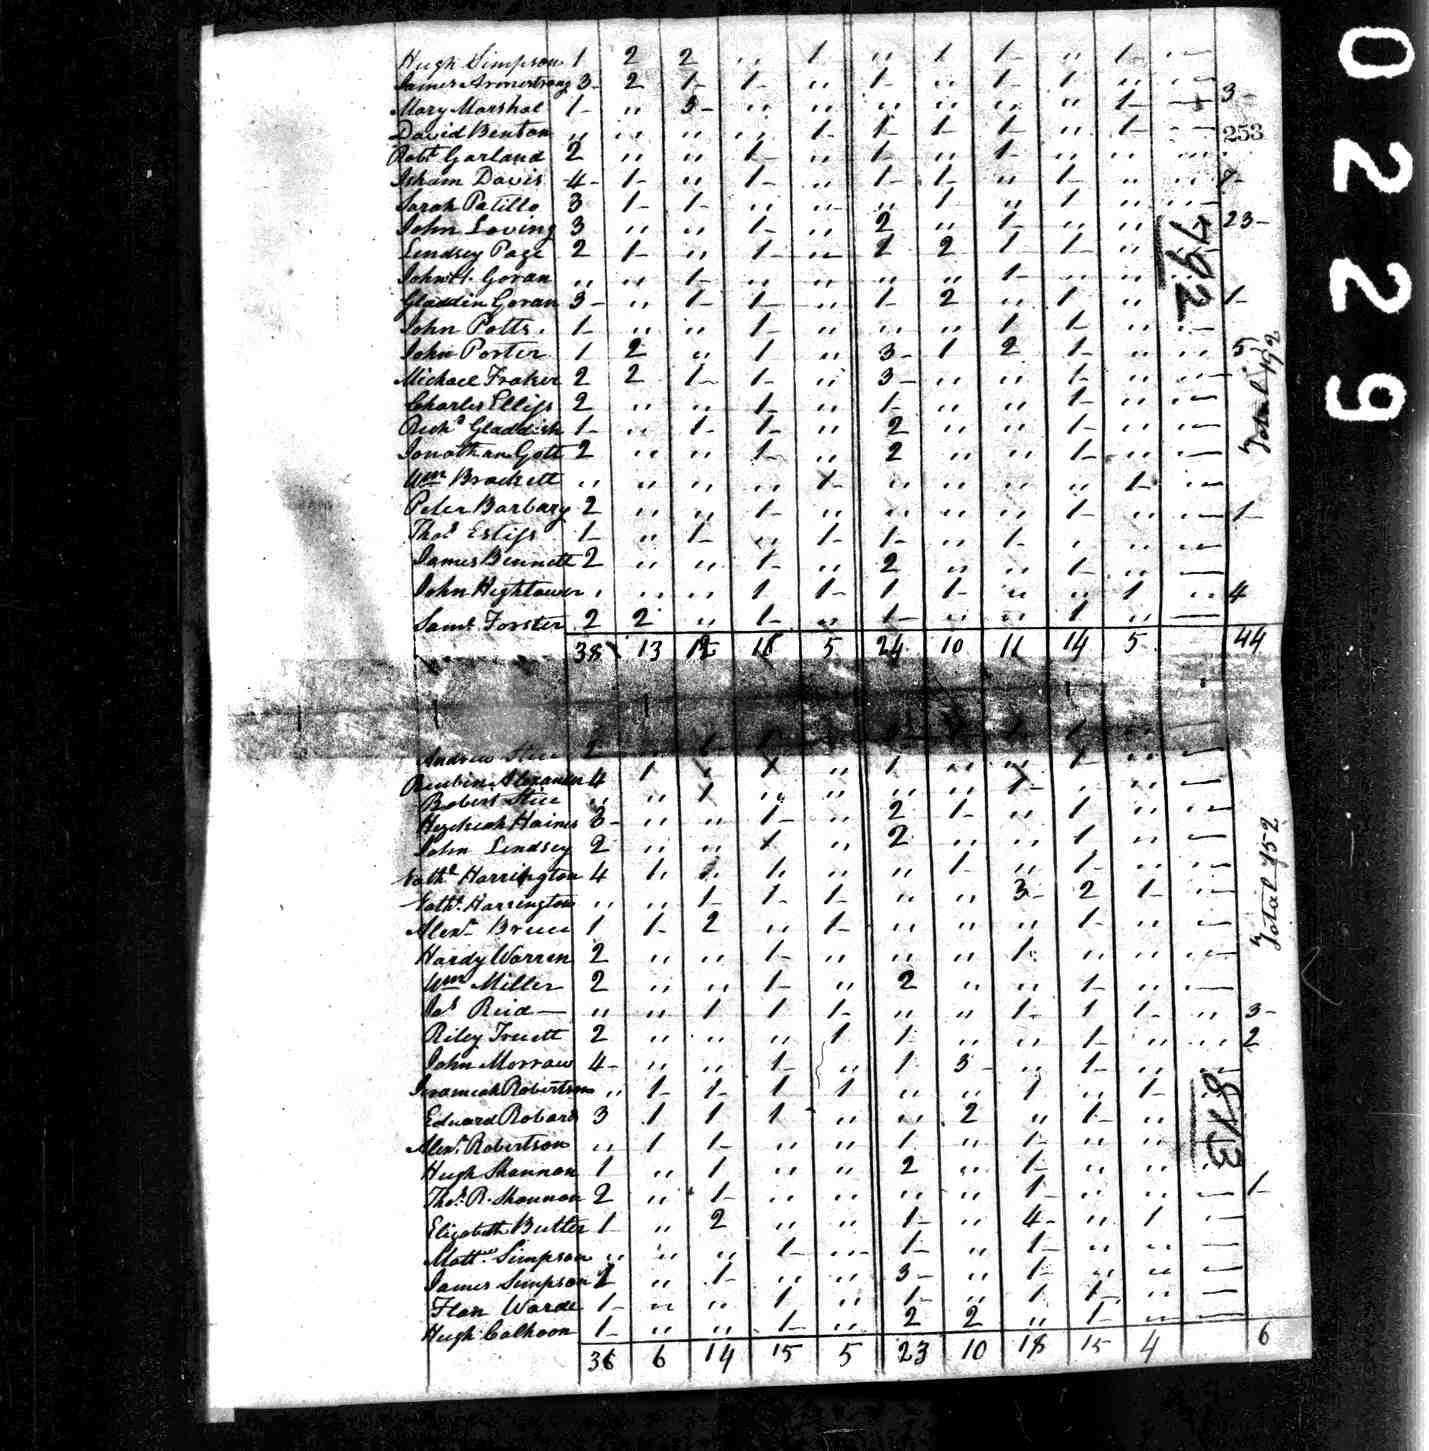 Hugh Simpson 1 2 2 " 1 " 1 1 " 1 " —
James Armestrong 3 2 1 1 " 1 " 1 1 " " —
Mary Marshal 1 " 3 " " " " " " 1 — 3
David Benton " " " " 1 1 1 1 " 1 — 253
Robt Garland 2 " " 1 " 1 " 1 " " " "
Isham Davis 4 1 " 1 " 1 1 " 1 " " 7
Sarah Patillo 3 1 1 " " " 1 " 1 " " —
John Loving 3 " " 1 " 2 " 1 " " 23
Lindsey Page 2 1 " 1 " 1 2 1 1 "
John H. Goran " " 1 " " " " 1 " "
Gladdin Goran 3 " 1 1 " 1 2 " 1 " 1
John Potts 1 " " 1 " " " 1 1 " " —
792
John Porter 1 2 " 1 " 3 1 2 1 " " 5
Michael Fraker 2 2 1 1 " 3 " " 1 " " —
Charles Ellis 2 " " 1 " 1 " " 1 " " —
Richd Gladdish 1 " 1 1 " 2 " " 1 " " —
Jonathan Gott 2 " " 1 " 2 " " 1 " " —
Wm Brackett " " " " 1 " " " " 1 " —
Peter Barbary 2 " " 1 " " " " 1 " " — 1
Thos Estiss 1 " 1 " 1 1 " 1 " " " —
James Bennett 2 " " 1 " 2 " " 1 " —
John Hightower " " " 1 1 1 1 " " 1 " 4
Saml Forster 2 2 " 1 " 1 " " 1 " —
38 13 12 18 5 24 10 11 14 5 44
Total 192
Andrew Stice 2 " 1 1
Reubin Alexander 4 1 " 1 " 1 " " 1 " —
Robert Stice " " 1 " " " " 1 " " —
Hezekiah Haines 3 " " 1 " 2 1 " 1 " " —
John Lindsey 2 " " 1 " 2 " " 1 " " —
Nathl Harrington 4 1 " 1 " " 1 " 1 " " —
Nathl Harrington " " 1 1 1 " " 3 2 1 " —
Alexr Bruce 1 1 2 " 1 " " " 1 " " —
Hardy Warren 2 " " 1 " " " 1 " " " —
Wm Miller 2 " " 1 " 2 " " 1 " " —
Jas Reid — " " 1 1 1 " " 1 1 1 " — 3
Riley Truett 2 " " " 1 1 " " 1 " " " 2
John Morraw 4 " " 1 " 1 3 " 1 " " —
Jeramiah Robertson " 1 1 1 1 " " 1 " 1 —
Edward Robard 3 1 1 1 " " 2 " 1 "
Alexr Robertson " 1 1 " " 1 " 1 " "
Hugh Shannon 1 " 1 " " 2 " 1 " "
Thos R. Shannon 2 " 1 " " " " 1 " " " — 1
813
Elizabeth Butler 1 " 2 " " 1 " 4 " 1 " —
Mattw Simpson " " " 1 " 1 " 1 " " " —
James Simpson 2 " 1 " " 3 " 1 " " " —
Flan Warde 1 " " 1 " 1 " 1 1 " " —
Hugh Calhoon 1 " " 1 " 2 2 " 1 " " —
36 6 14 15 5 23 10 18 15 4 6
Total 152
0229